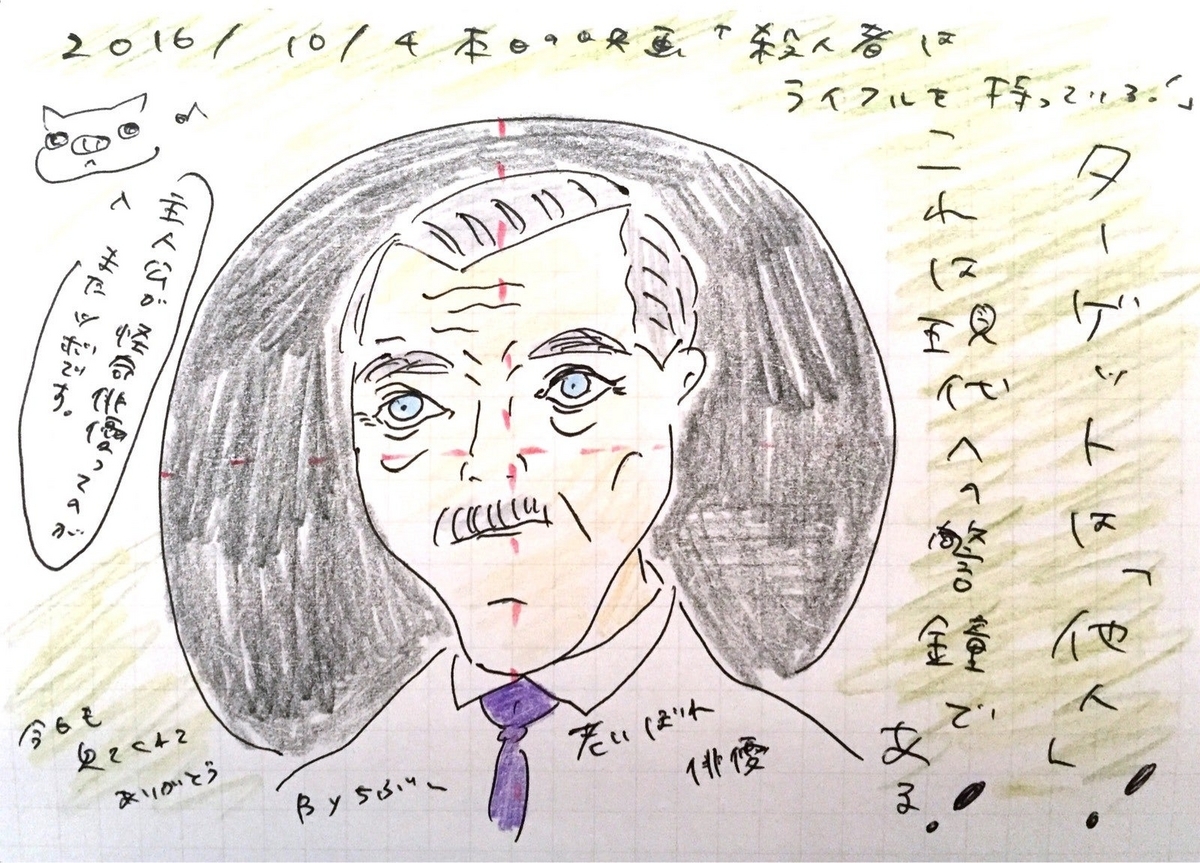 2016/10/4 本日の映画「殺人者は
ライフルを持っている!」
ターゲットは「他人」!
これは現代への警鐘で
ある!
主人公が怪奇俳優ってのが
またツボです。
老いぼれ
俳優
今日も
見てくれて
ありがとう
By ちぶ